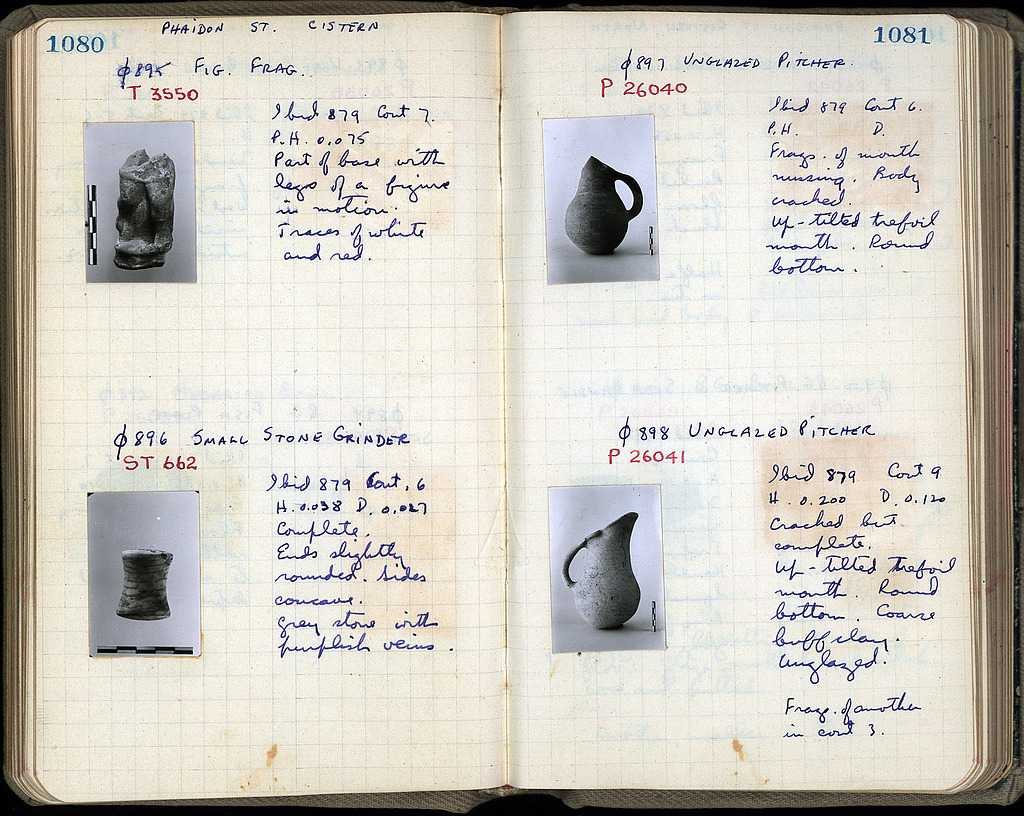 1080
PHAIDON ST. CISTERN
φ895 FIG. FRAG.
T 3550
Ibid 879 Cont 7.
P.H. 0.075
Part of base with
legs of a figure
in motion.
Traces of white
and red.
φ896 SMALL STONE GRINDER
ST 662
Ibid 879 Cont. 6
H. 0.038 D. 0.027
Complete.
Ends slightly
rounded. Sides
concave.
Grey stone with
purplish veins.
1081
φ897 UNGLAZED PITCHER.
P 26040
Ibid 879 Cont 6.
P.H. D.
Frags. of mouth
missing. Body
cracked.
Up-tilted trefoil
mouth. Round
bottom.
φ898 UNGLAZED PITCHER
P 26041
Ibid 879 Cont 9
H. 0.200 D. 0.120
Cracked but
complete.
Up-tilted trefoil
mouth. Round
bottom. Coarse
buff clay.
Unglazed.
Frags. of another
in cont 3.